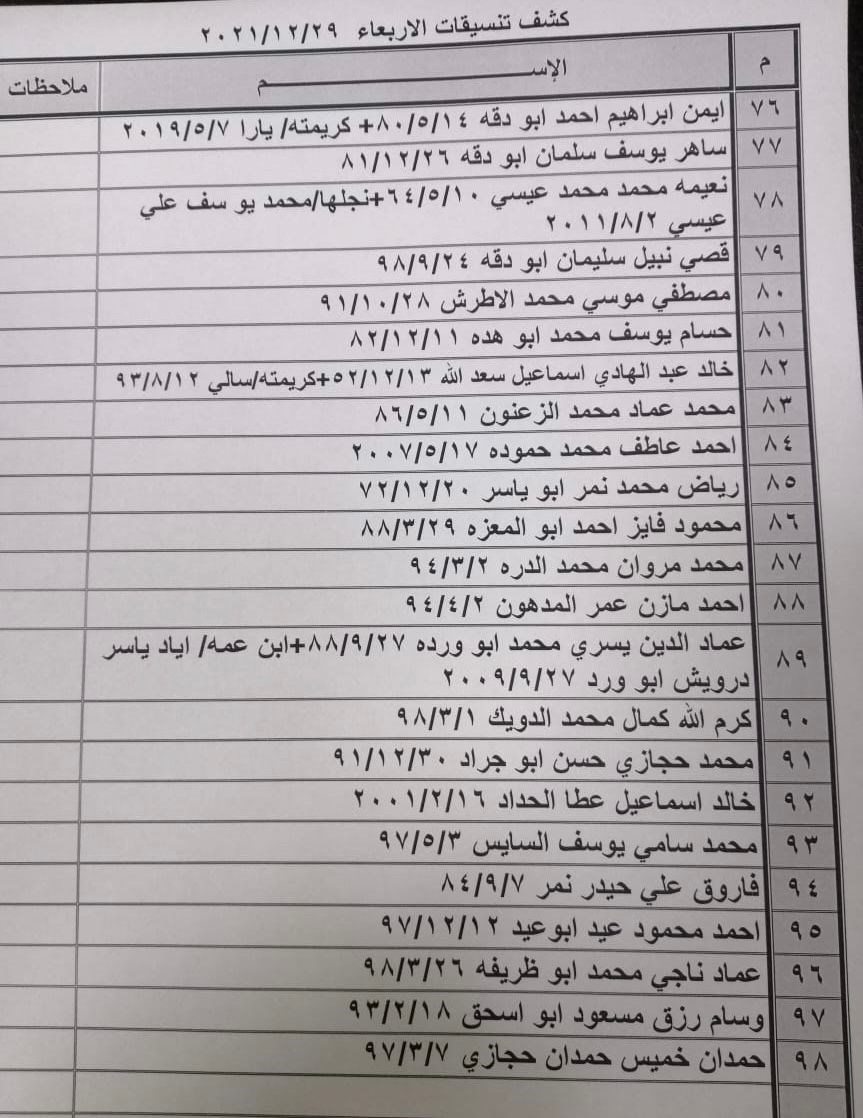 كشف تنسيقات الاربعاء ٢٠٢١/١٢/٢٩
م الإســـــــــــــم ملاحظات
٧٦ ايمن ابراهيم احمد ابو دقه ٨٠/٥/١٤+ كريمته/ يارا ٢٠١٩/٥/٧
٧٧ ساهر يوسف سلمان ابو دقه ٨١/١٢/٢٦
٧٨ نعيمه محمد محمد عيسي ٦٤/٥/١٠+نجلها/محمد يو سف علي
عيسي ٢٠١١/٨/٢
٧٩ قصي نبيل سليمان ابو دقه ٩٨/٩/٢٤
٨٠ مصطفي موسي محمد الاطرش ٩١/١٠/٢٨
٨١ حسام يوسف محمد ابو هده ٨٢/١٢/١١
٨٢ خالد عبد الهادي اسماعيل سعد الله ٥٢/١٢/١٣+كريمته/سالي ٩٣/٨/١٢
٨٣ محمد عماد محمد الزعنون ٨٦/٥/١١
٨٤ احمد عاطف محمد حموده ٢٠٠٧/٥/١٧
٨٥ رياض محمد نمر ابو ياسر ٧٢/١٢/٢٠
٨٦ محمود فايز احمد ابو المعزه ٨٨/٣/٢٩
٨٧ محمد مروان محمد الدره ٩٤/٣/٢
٨٨ احمد مازن عمر المدهون ٩٤/٤/٢
٨٩ عماد الدين يسري محمد ابو ورده ٨٨/٩/٢٧+ابن عمه/ اياد ياسر
درويش ابو ورد ٢٠٠٩/٩/٢٧
٩٠ كرم الله كمال محمد الدويك ٩٨/٣/١
٩١ محمد حجازي حسن ابو جراد ٩١/١٢/٣٠
٩٢ خالد اسماعيل عطا الحداد ٢٠٠١/٢/١٦
٩٣ محمد سامي يوسف السايس ٩٧/٥/٣
٩٤ فاروق علي حيدر نمر ٨٤/٩/٧
٩٥ احمد محمود عيد ابوعيد ٩٧/١٢/١٢
٩٦ عماد ناجي محمد ابو ظريفه ٩٨/٣/٢٦
٩٧ وسام رزق مسعود ابو اسحق ٩٣/٢/١٨
٩٨ حمدان خميس حمدان حجازي ٩٧/٣/٧